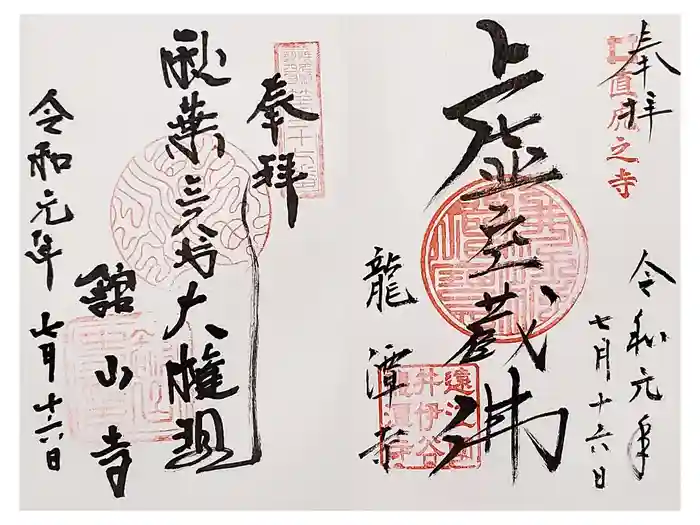 奉拝
直虎之寺
虚空蔵佛
令和元年
七月十六日
龍潭寺
遠江国
井伊谷
龍潭寺
奉拝
秋葉三尺坊大権現
舘山寺
令和元年七月十六日